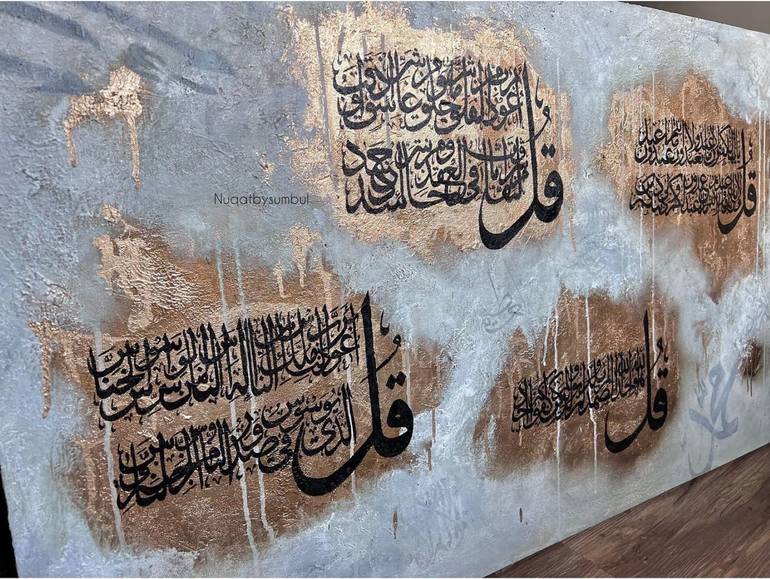 قل أعوذ برب الفلق من شر ما خلق ومن شر غاسق إذا وقب
ومن شر النفاثات في العقد ومن شر حاسد إذا حسد
Nuqatbysumbul
قل أعوذ برب الناس ملك الناس إله الناس من شر الوسواس الخناس
الذي يوسوس في صدور الناس من الجنة والناس
قل هو الله أحد الله الصمد لم يلد ولم يولد ولم يكن له كفوا أحد
قل يا أيها الكافرون لا أعبد ما تعبدون ولا أنتم عابدون ما أعبد
محمد